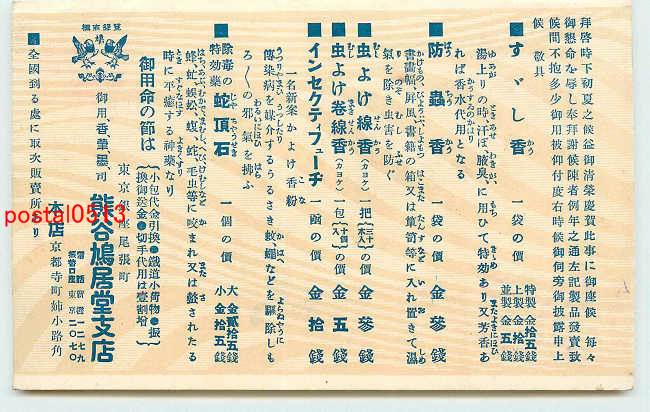 拝啓時下初夏之候益御清榮慶賀此事に御座候　毎々
御懇命を辱し奉拜謝候陳者例年之通左記製品發賣致
候間不抱多少御用被仰付度右時候御伺旁御披露申上
候　敬具
■すゞし香　一袋の價　特製金拾五錢　上製金拾錢　並製金五錢
湯上りの時、汗ぼ、腋臭に用ひて特効あり又芳香あ
れば香水代用となる
■防蟲香　一袋の價　金參錢
書畵幅、屏風、書籍の箱又は簞笥等に入れ置きて濕
氣を除き虫害を防ぐ
■虫よけ線香（カヨケ）　一把（三十本入）の價　金參錢
■虫よけ卷線香（カヨケ）　一包（十個入）の價　金五錢
■インセクティフューヂ　一函の價　金拾錢
一名新薬かよけ香粉
傳染病を媒介するうるさき蚊、蠅などを驅除しも
ろ〱の邪氣を拂ふ
■除毒の特効藥　蛇頂石　一個の價　大金貳拾五錢　小金拾五錢
蜂、虻、蜈蚣、蝮、蛇、毛虫等に咬まれ又は螫されたる
時に平癒する神藥なり
御用命の節は　小包代金引換●鐵道小荷物●振
換御送金●切手代用は壹割增
登録商標
御用香墨筆司
東京銀座尾張町
熊谷鳩居堂支店
電話新橋一二七九
振替口座東京二〇七〇
本店　京都寺町姉小路角
■全國到る處に取次販賣所あり
postal0513